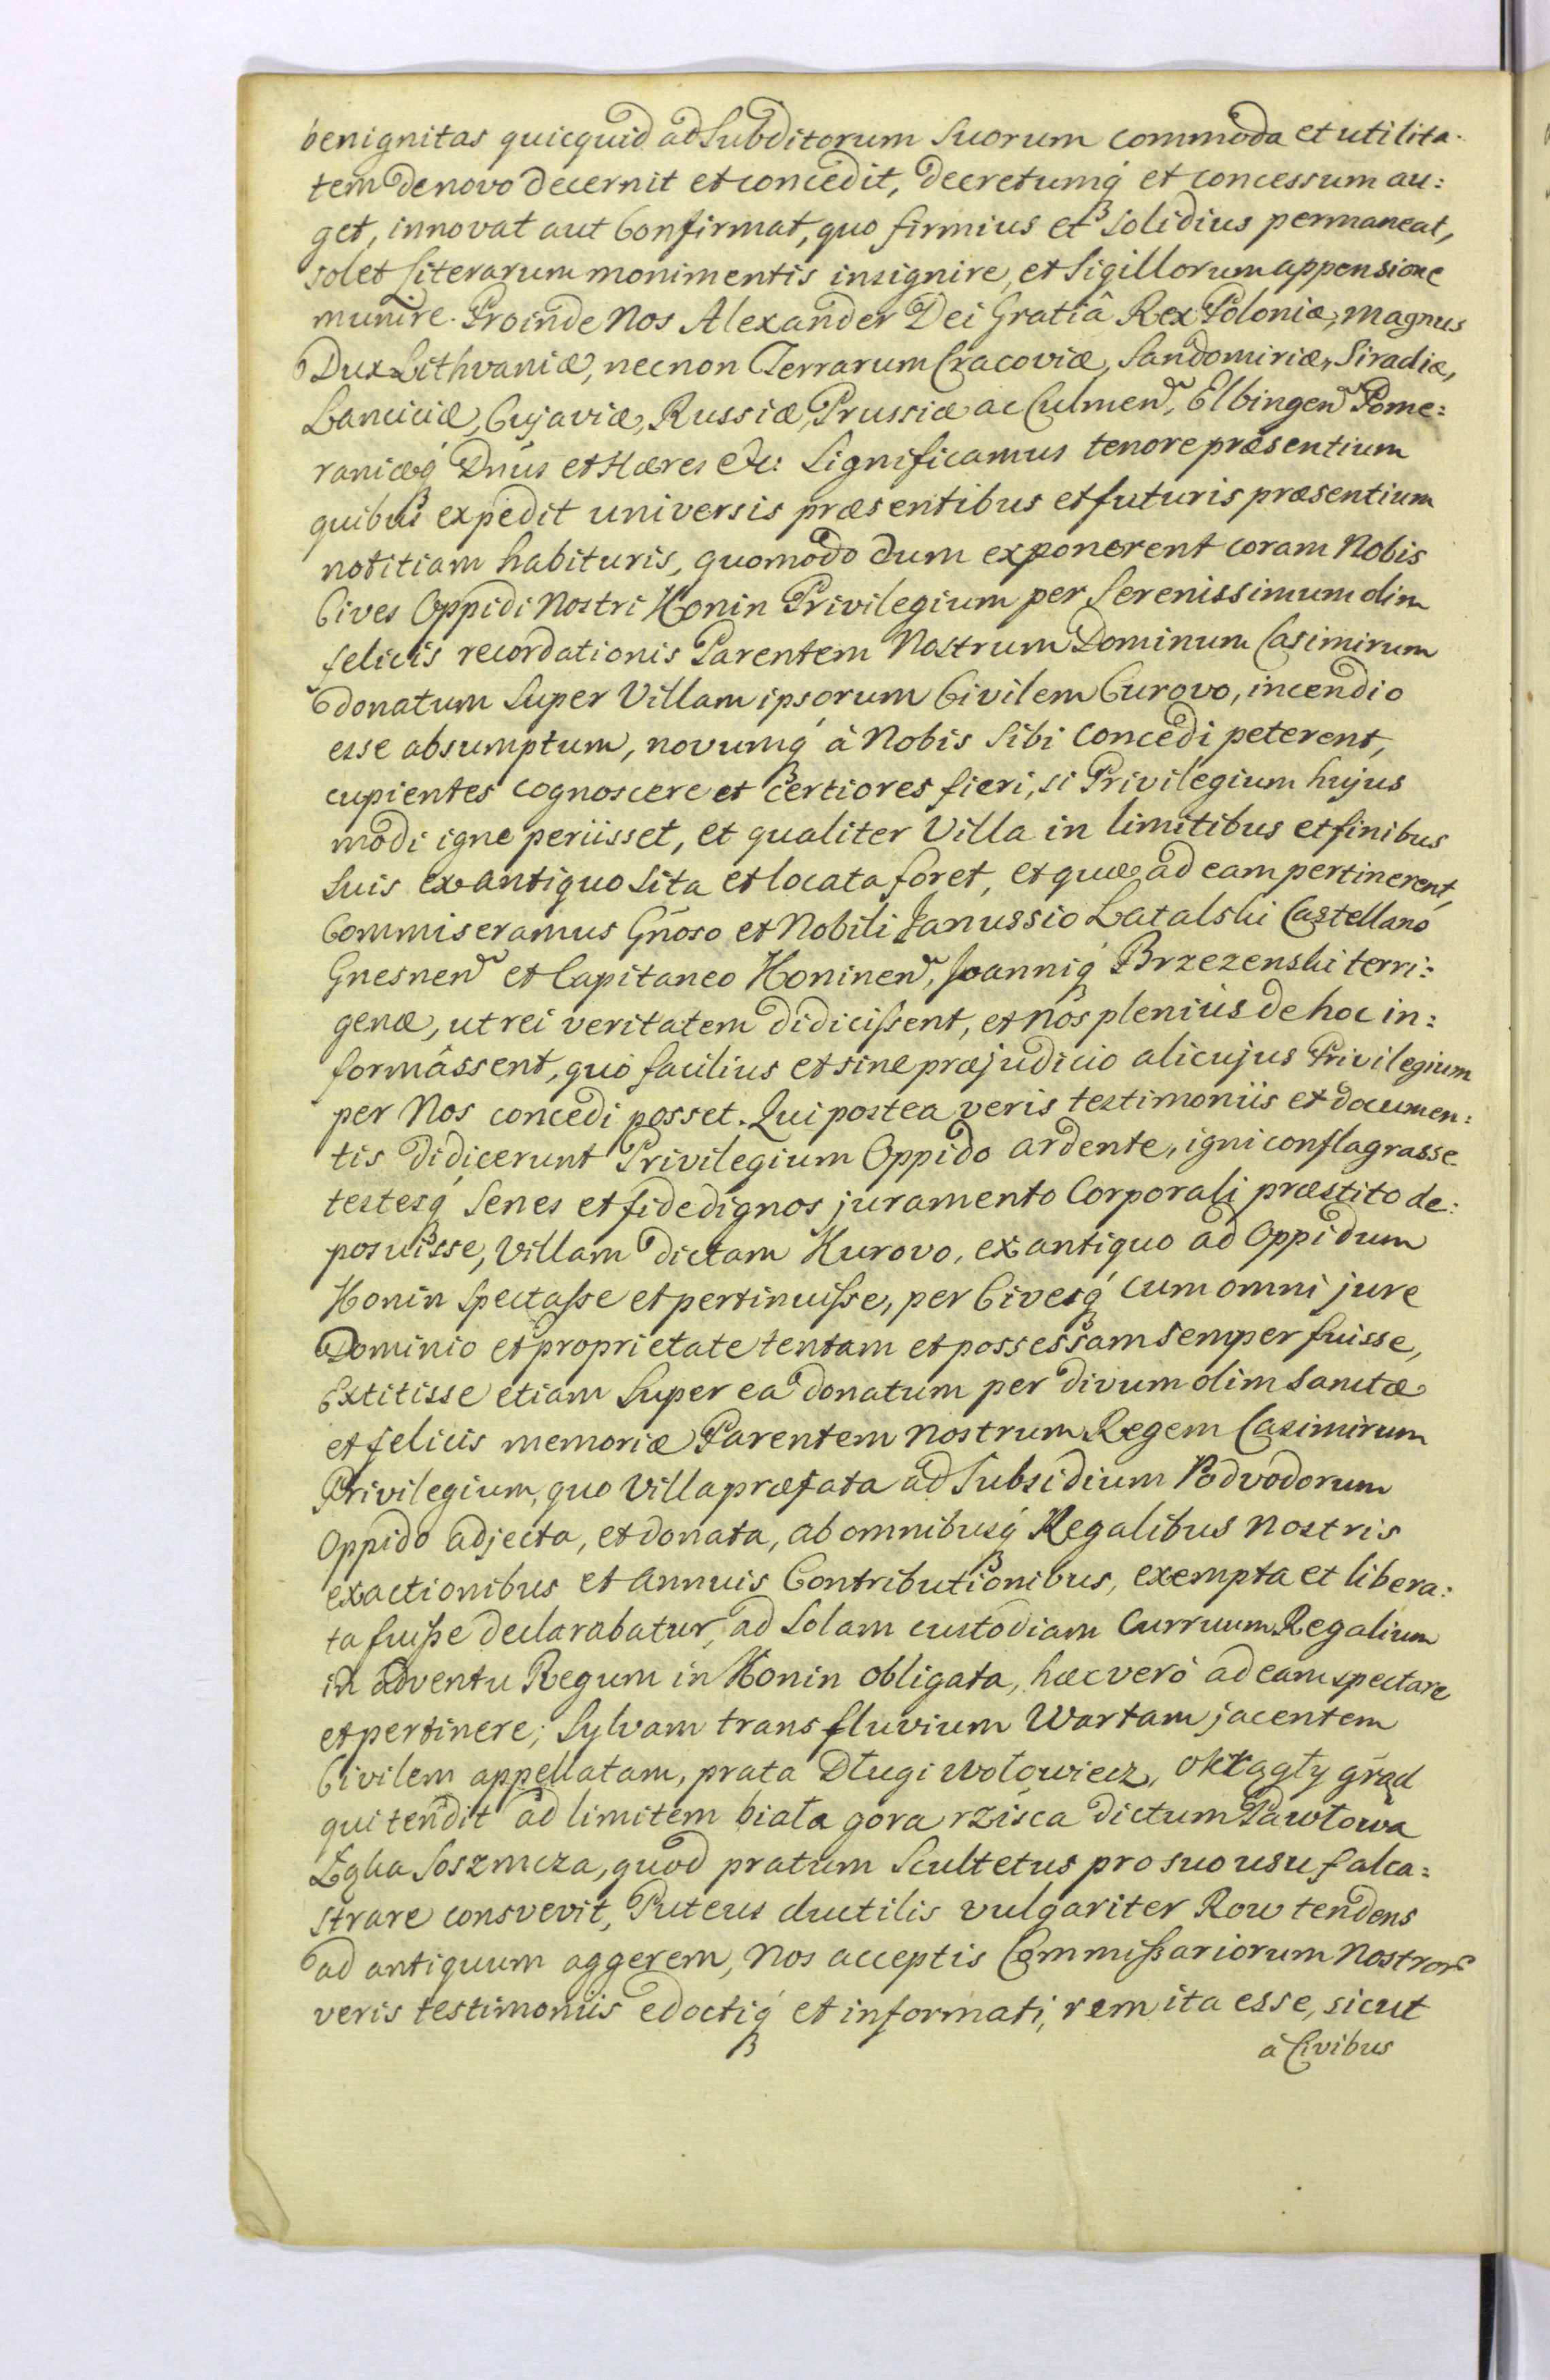 benignitas quicquid ad Subditorum Suorum commoda et utilita-
tem de novo decernit et concedit, decretumq́ et concessum au:
get, innovat aut Confirmat, quo firmius et solidius permaneat,
solet Literarum monimentis insignire, et Sigillorum appensione
munire. Proinde Nos Alexander Dei Gratiâ Rex Poloniæ, magnus
Dux Lithvaniæ, necnon Terrarum Cracoviæ, Sandomiriæ, Siradiæ,
Lanciciæ, Cujaviæ, Russiæ, Prussiæ ac Culmen, Elbingen Pome:
raniæq́ Dnús et Hæres etc: Significamus tenore præsentium
quibus expedit universis præsentibus et futuris præsentium
notitiam habituris, quomodo dum exponerent coram Nobis
Cives Oppidi Nostri Konin Privilegium per Serenissimum olim
felicis recordationis Parentem Nostrum Dominum Casimirum
donatum Super Villam ipsorum Civilem Curovo, incendio
esse absumptum, novumq́ à Nobis Sibi concedi peterent,
cupientes cognoscere et certiores fieri, si Privilegium hujus
modi igne periisset, et qualiter Villa in limitibus et finibus
Suis ex antiquo Sita et locata foret, et quæ ad eam pertinerent,
Commiseramus Gñoso et Nobili Janussio Latalski Castellano
Gnesnen et Capitaneo Koninen, Joanniq́ Brzezenski terri:
genæ, ut rei veritatem didicissent, et nos plenius de hoc in:
formâssent, quò facilius et sine præjudicio alicujus Privilegium
per Nos concedi posset. Qui postea veris testimoniis et documen:
tis didicerunt Privilegium Oppido ardente, igni conflagrasse
testesq́ Senes et fide dignos juramento Corporali præstito de:
posuisse, Villam dictam Kurovo, ex antiquo ad Oppidum
Konin Spectasse et pertinuisse, per Civesq́ cum omni jure
Dominio et proprietate tentam et possessam semper fuisse,
Extitisse etiam Super ea donatum per divum olim Sanctæ
et felicis memoriæ Parentem nostrum Regem Casimirum
Privilegium, quo Villa præfata ad Subsidium Podvodorum
Oppido adjecta, et donata, ab omnibusq́ Regalibus nostris
exactionibus et annuis Contributionibus, exempta et libera:
ta fuisse declarabatur, ad Solam custodiam Curruum Regalium
in adventu Regum in Konin obligata, hæc verò ad eam spectare
et pertinere; Sylvam trans fluvium Wartam jacentem
Civilem appellatam, prata Długi Wołowiecz, okrągły grąd
qui tendit ad limitem biała gora rzisca dictum Pawłowa
Soszmcza, quod pratum Scultetus pro suo usu falca:
strare consvevit, Puteus ductilis vulgariter Row tendens
ad antiquum aggerem, Nos acceptis Commissariorum Nostror
veris testimoniis edoctiq́ et informati, rem ita esse, sicut
à Civibus